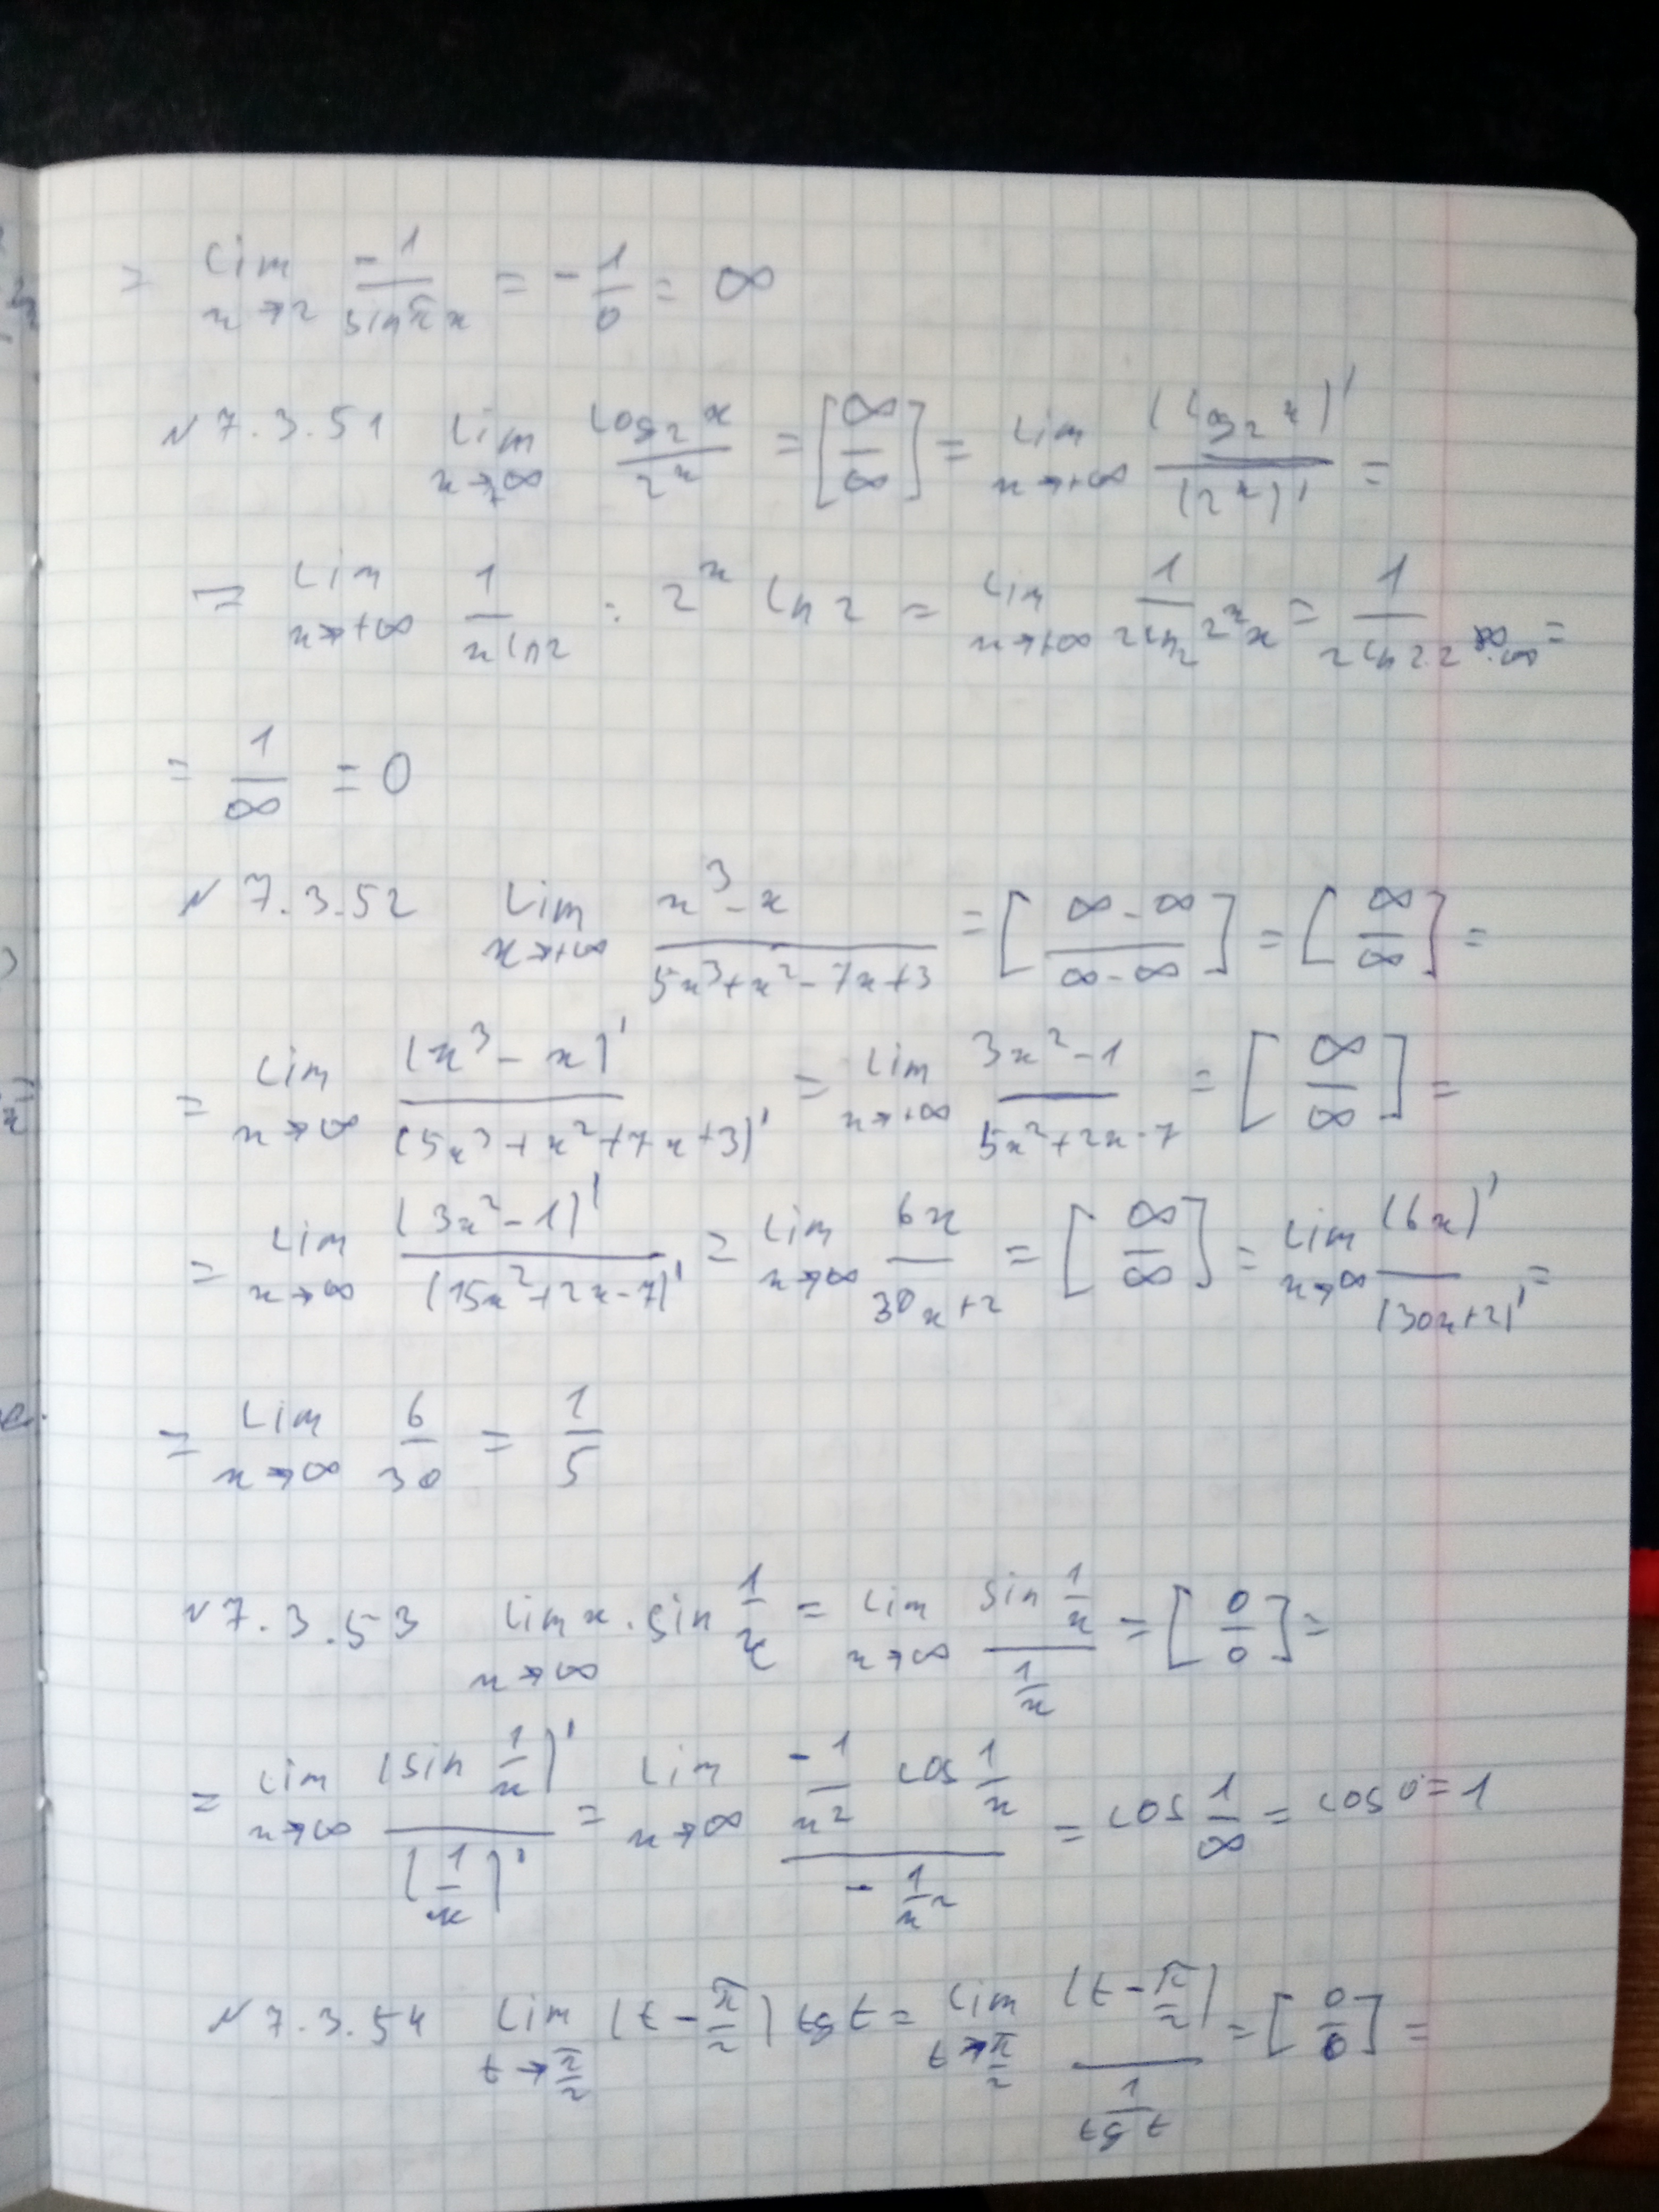 = lim x→2 -1/sin πx = -1/0 = ∞
N 7.3.51 lim x→+∞ log₂x/2ˣ = [∞/∞] = lim x→+∞ (log₂x)'/(2ˣ)' =
= lim x→+∞ 1/(x ln2) : 2ˣ ln 2 = lim x→+∞ 1/(2 ln₂ 2ˣ x) = 1/(2 ln 2·2 ∞·∞) =
= 1/∞ = 0
N 7.3.52 lim x→+∞ (x³-x)/(5x³+x²-7x+3) = [(∞-∞)/(∞-∞)] = [∞/∞] =
= lim x→∞ (x³-x)'/(5x³+x²+7x+3)' = lim x→+∞ (3x²-1)/(5x²+2x-7) = [∞/∞] =
= lim x→∞ (3x²-1)'/(15x²+2x-7)' = lim x→∞ 6x/(30x+2) = [∞/∞] = lim x→∞ (6x)'/(30x+2)' =
= lim x→∞ 6/30 = 1/5
N 7.3.53 lim x→∞ x·sin 1/x = lim x→∞ (sin 1/x)/(1/x) = [0/0] =
= lim x→∞ (sin 1/x)'/(1/x)' = lim x→∞ (-1/x² cos 1/x)/(-1/x²) = cos 1/∞ = cos 0 = 1
N 7.3.54 lim t→π/2 (t-π/2) tg t = lim t→π/2 (t-π/2)/(1/tg t) = [0/0] =